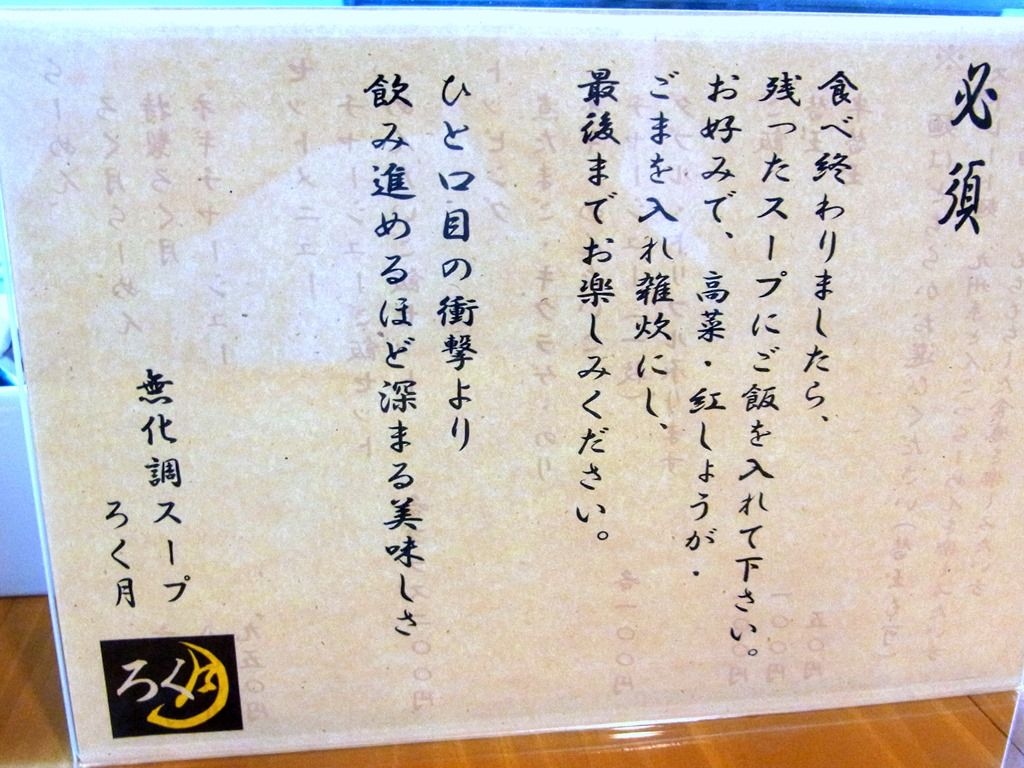 必須
食べ終わりましたら、
残ったスープにご飯を入れて下さい。
お好みで、高菜・紅しょうが・
ごまを入れ雑炊にし、
最後までお楽しみください。
ひと口目の衝撃より
飲み進めるほど深まる美味しさ
無化調スープ
ろく月
ろく月